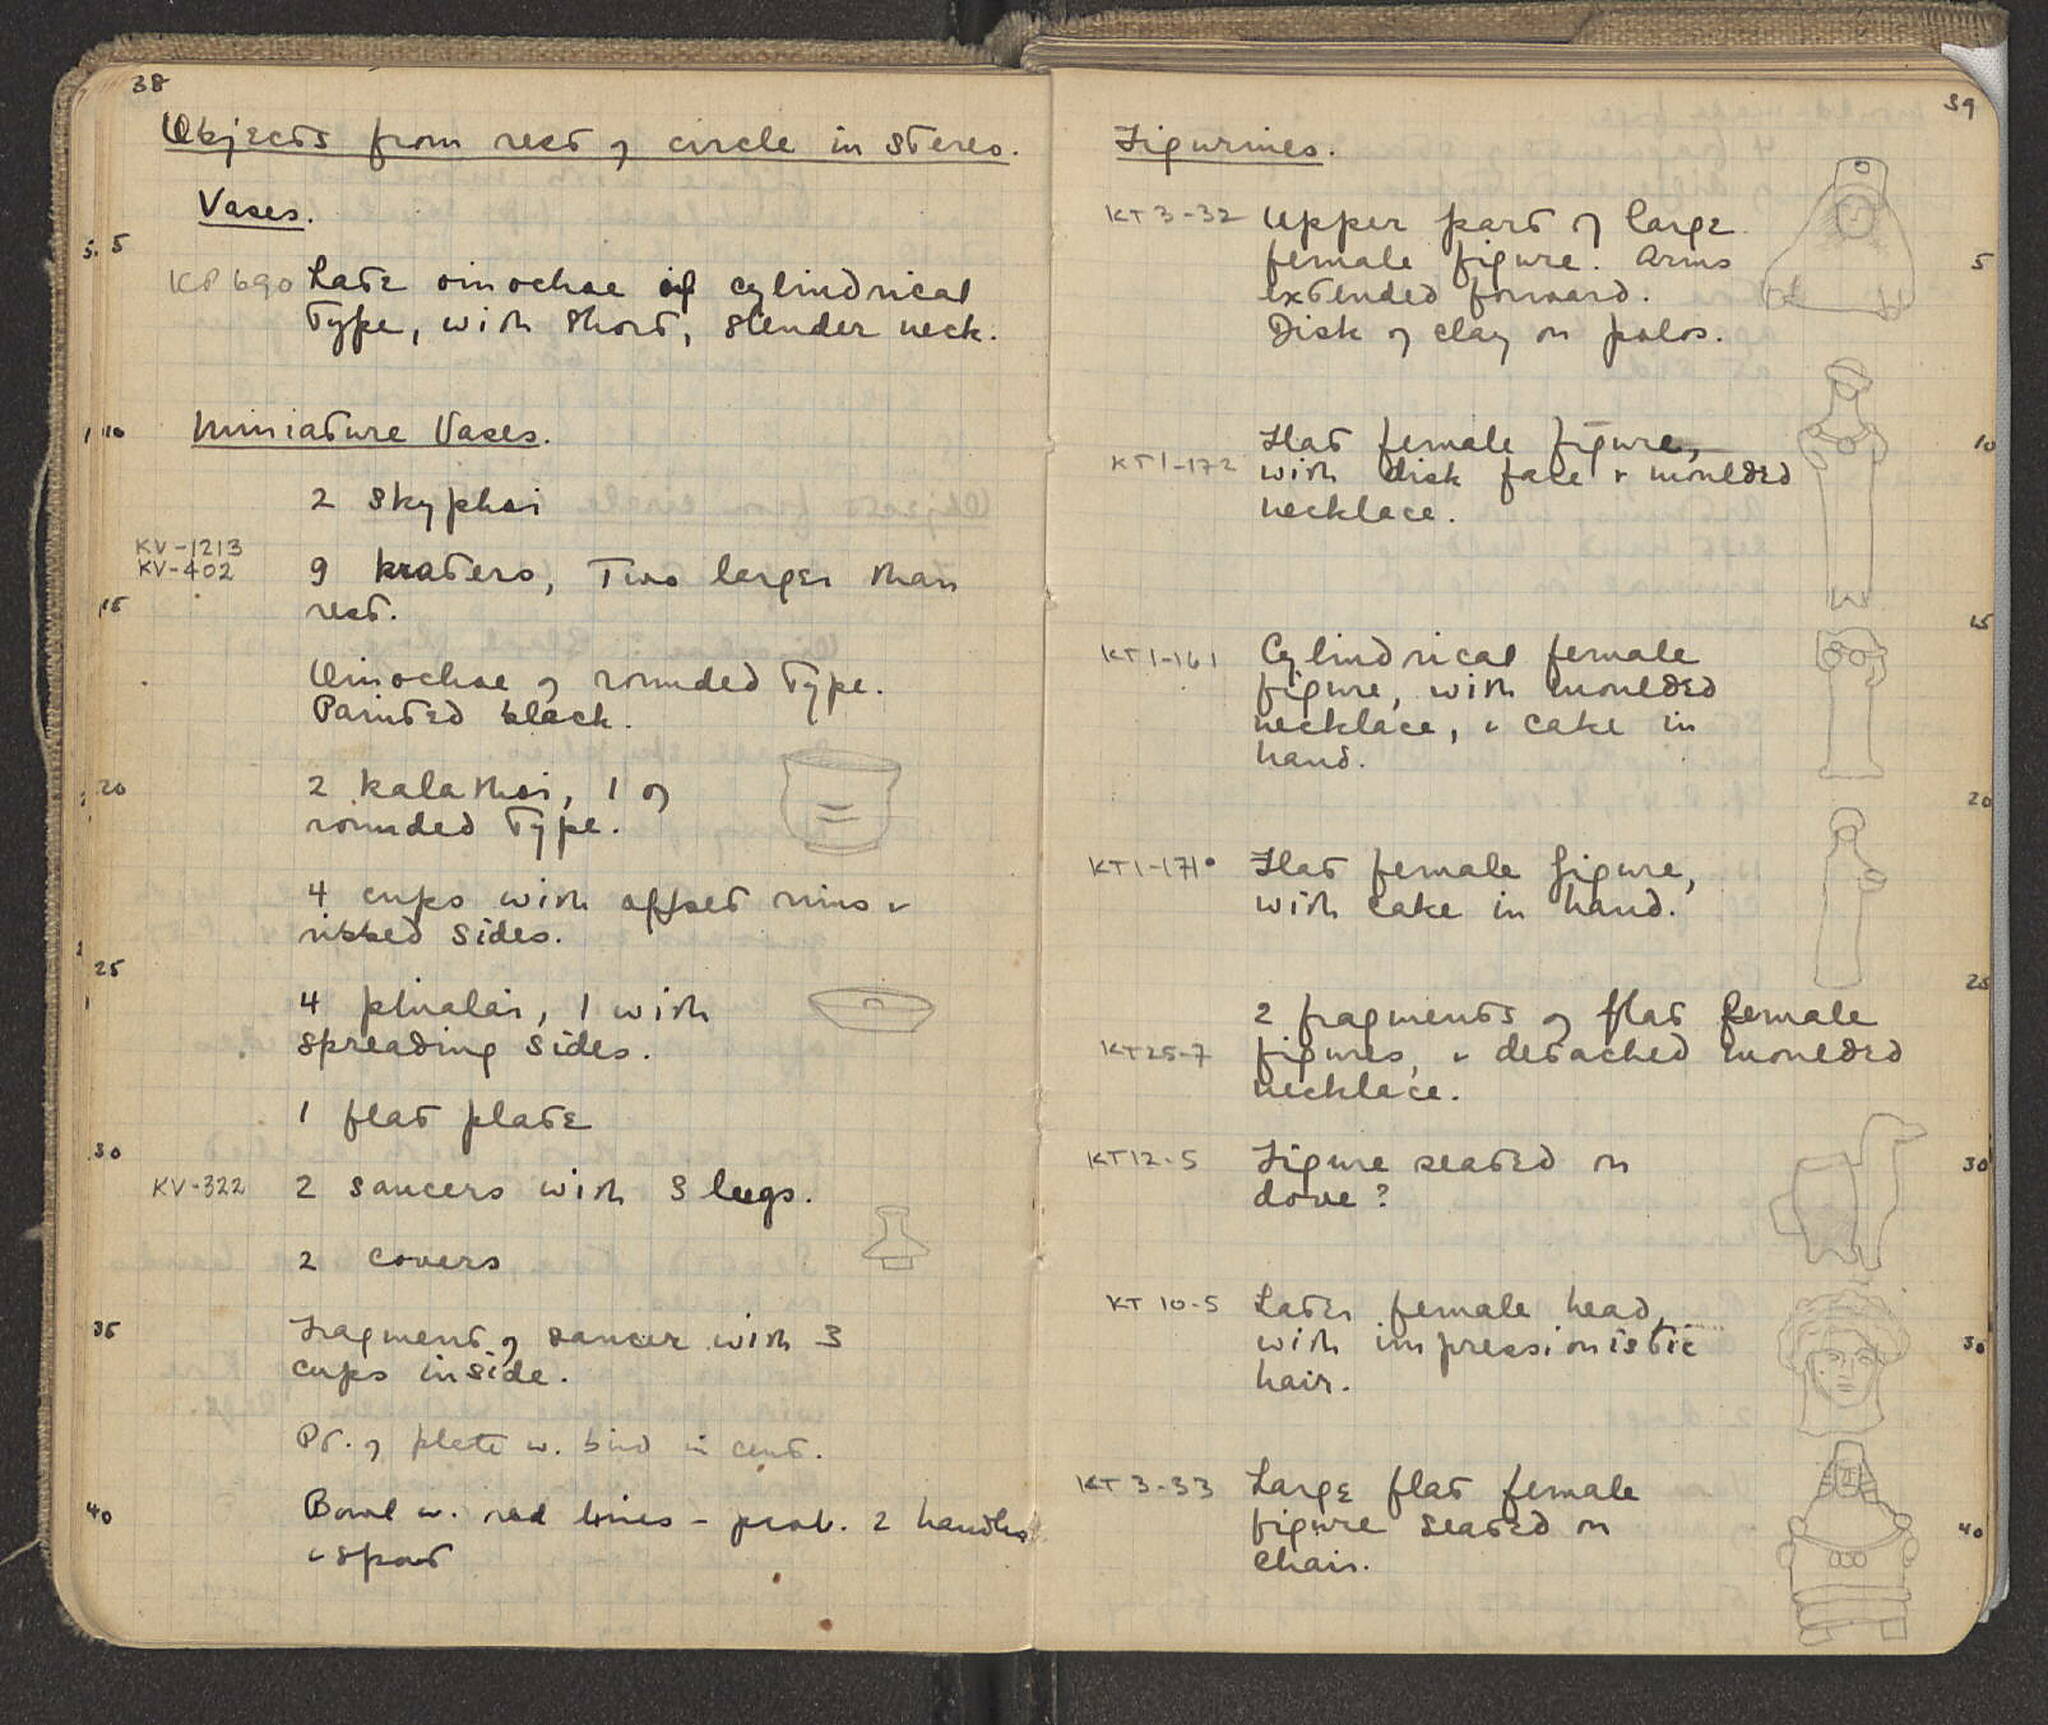 38
Objects from rest of circle in stereo.
Vases.
5
KP 690 Late oinochae of cylindrical
type, with short, slender neck.
10
Miniature Vases.
2 skyphoi
KV-1213
KV-402
9 kraters, Two larger than
15
rest.
Oinochae of rounded type.
Painted black.
20
2 kalathoi, 1 of
rounded type.
4 cups with offset rims &
ribbed sides.
25
4 phialai, 1 with
spreading sides.
1 flat plate
30
KV-322 2 saucers with 3 legs.
2 covers
35
Fragment of saucer with 3
cups inside.
Pt. of plate w. bird in cent.
40
Bowl w. red lines - prob. 2 handles
& spout
39
Figurines.
KT 3-32 Upper part of large
female figure. Arms
5
extended forward.
Disk of clay on polos.
Flat female figure,
10
KT1-172 with disk face & moulded
necklace.
15
KT1-161 Cylindrical female
figure, with moulded
necklace, & cake in
hand.
20
KT1-171 Flat female figure,
with cake in hand.
25
2 fragments of flat female
KT25-7 figures, & detached moulded
necklace.
KT12-5 Figure seated on
30
dove?
KT 10-5 Later female head,
with impressionistic
hair.
KT 3-33 Large flat female
figure seated on
40
chair.